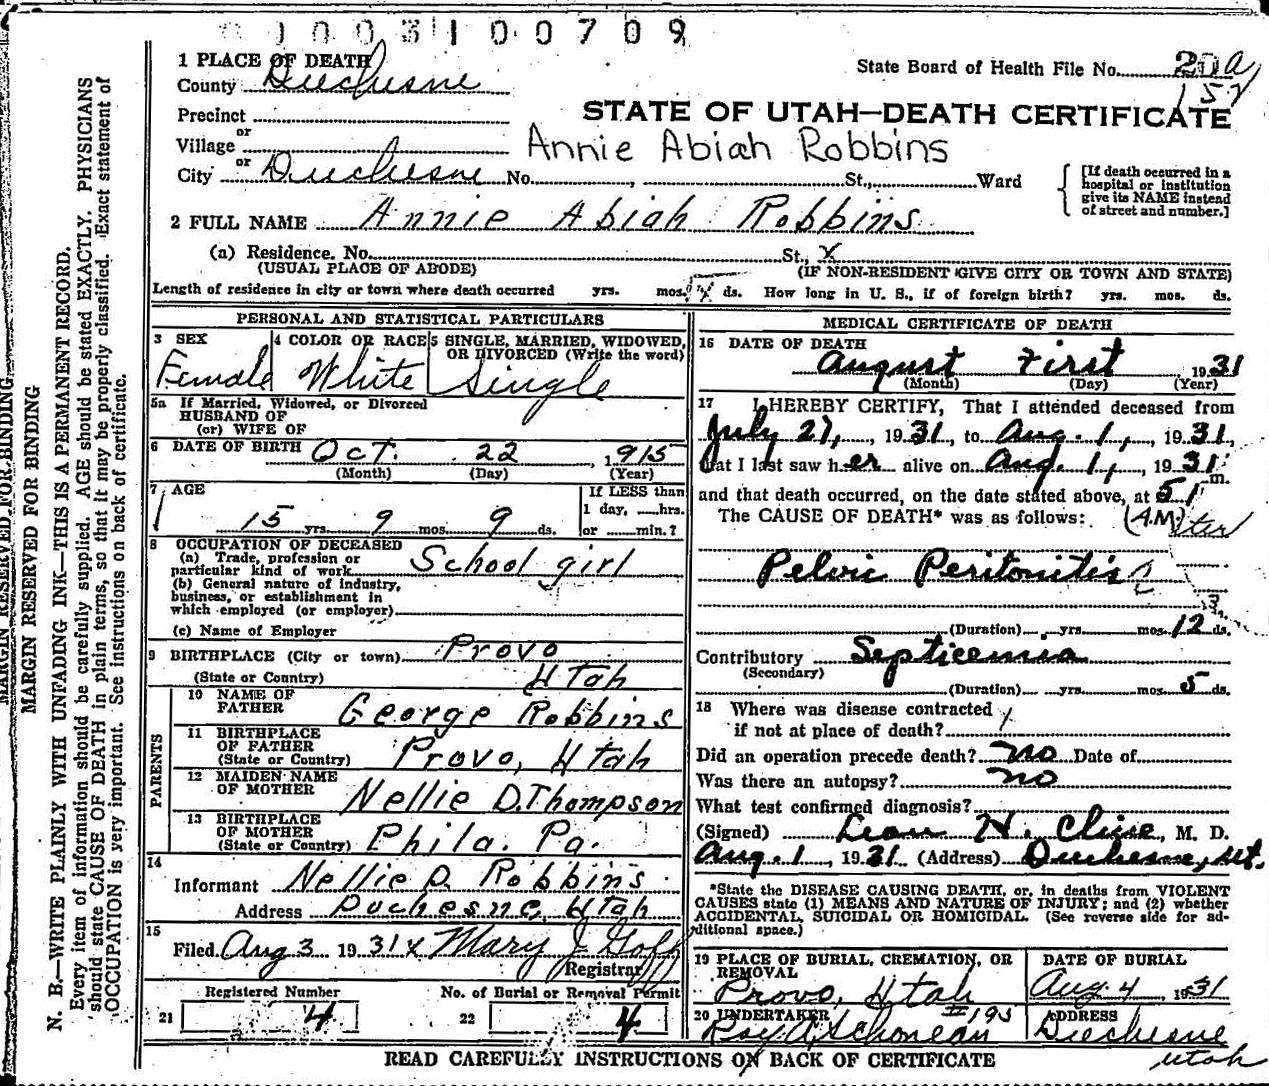 0 1 0 0 3 1 0 0 7 0 9
1 PLACE OF DEATH
County Duchesne
State Board of Health File No. 20a
157
Precinct
STATE OF UTAH—DEATH CERTIFICATE
or
Village
Annie Abiah Robbins
or
City Duchesne No. , St., Ward
[If death occurred in a hospital or institution give its NAME instead of street and number.]
2 FULL NAME Annie Abiah Robbins
(a) Residence. No. St., x
(USUAL PLACE OF ABODE) (IF NON-RESIDENT GIVE CITY OR TOWN AND STATE)
Length of residence in city or town where death occurred yrs. mos. ds. How long in U. S., if of foreign birth? yrs. mos. ds.
PERSONAL AND STATISTICAL PARTICULARS
3 SEX
Female
4 COLOR OR RACE
White
5 SINGLE, MARRIED, WIDOWED,
OR DIVORCED (Write the word)
Single
5a If Married, Widowed, or Divorced
HUSBAND OF
(or) WIFE OF
6 DATE OF BIRTH Oct. 22 1915
(Month) (Day) (Year)
7 AGE
15 yrs. 9 mos. 9 ds.
If LESS than
1 day, hrs.
or min.?
8 OCCUPATION OF DECEASED
(a) Trade, profession or
particular kind of work School girl
(b) General nature of industry,
business, or establishment in
which employed (or employer)
(c) Name of Employer
9 BIRTHPLACE (City or town) Provo
(State or Country) Utah
PARENTS
10 NAME OF
FATHER George Robbins
11 BIRTHPLACE
OF FATHER
(State or Country) Provo, Utah
12 MAIDEN NAME
OF MOTHER Nellie D. Thompson
13 BIRTHPLACE
OF MOTHER
(State or Country) Phila. Pa.
14
Informant Nellie D. Robbins
Address Duchesne, Utah
15
Filed Aug 3 1931 x Mary J Goff
Registrar
Registered Number
21 4
No. of Burial or Removal Permit
22 4
MEDICAL CERTIFICATE OF DEATH
16 DATE OF DEATH
August First 1931
(Month) (Day) (Year)
17 I HEREBY CERTIFY, That I attended deceased from
July 27, , 1931, to Aug. 1, , 1931,
that I last saw her alive on Aug. 1, , 1931
and that death occurred, on the date stated above, at 51 m.
The CAUSE OF DEATH* was as follows: (A.M)
Pelvic Peritonitis
(Duration) yrs. mos. 12 ds.
Contributory Septicemia
(Secondary)
(Duration) yrs. mos. 5 ds.
18 Where was disease contracted
if not at place of death?
Did an operation precede death? no Date of
Was there an autopsy? no
What test confirmed diagnosis?
(Signed) Leon H. Cline, M. D.
Aug. 1 , 1931 (Address) Duchesne, Ut.
*State the DISEASE CAUSING DEATH, or, in deaths from VIOLENT
CAUSES state (1) MEANS AND NATURE OF INJURY; and (2) whether
ACCIDENTAL, SUICIDAL OR HOMICIDAL. (See reverse side for additional space.)
19 PLACE OF BURIAL, CREMATION, OR
REMOVAL
Provo, Utah
DATE OF BURIAL
Aug. 4 , 1931
20 UNDERTAKER #193
Roy A Schonean
ADDRESS
Duchesne
Utah
READ CAREFULLY INSTRUCTIONS ON BACK OF CERTIFICATE
MARGIN RESERVED FOR BINDING
MARGIN RESERVED FOR BINDING
N. B.—WRITE PLAINLY WITH UNFADING INK—THIS IS A PERMANENT RECORD.
Every item of information should be carefully supplied. AGE should be stated EXACTLY. PHYSICIANS
should state CAUSE OF DEATH in plain terms, so that it may be properly classified. Exact statement of
OCCUPATION is very important. See instructions on back of certificate.